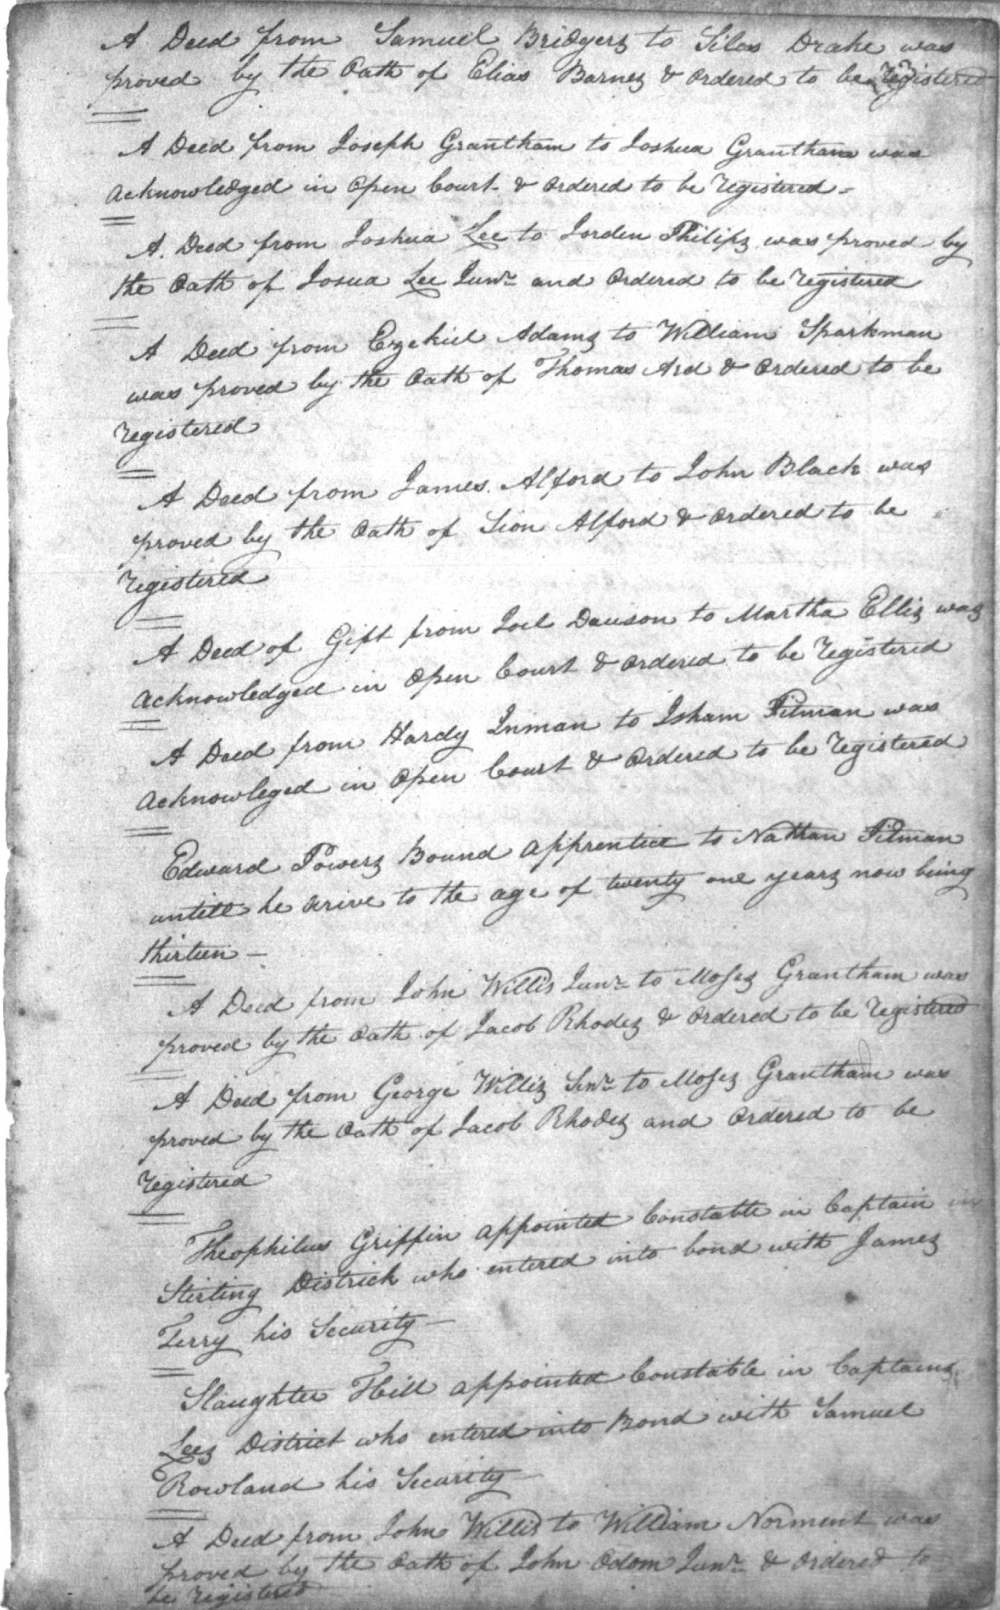 A Deed from Samuel Bridgers to Silas Drake was
proved by the Oath of Elias Barnes & Ordered to be registered
A Deed from Joseph Grantham to Joshua Grantham was
Acknowledged in Open Court & Ordered to be registered -
A. Deed from Joshua Lee to Jorden Philips was proved by
the Oath of Josua Lee Junr. and Ordered to be registered
A Deed from Ezekiel Adams to William Sparkman
was proved by the Oath of Thomas Ard & Ordered to be
registered
A Deed from James Alford to John Black was
proved by the Oath of Sion Alford & Ordered to be
registered
A Deed of Gift from Joel Dawson to Martha Ellis was
Acknowledged in Open Court & Ordered to be registered
A Deed from Hardy Inman to Isham Pitman was
Acknowleged in Open Court & Ordered to be registered
Edward Powers Bound Apprentice to Nathan Pitman
untill he arive to the age of twenty one years now being
thirteen -
A Deed from John Willis Junr. to Moses Grantham was
proved by the Oath of Jacob Rhodes & Ordered to be registered
A Deed from George Willis Senr. to Moses Grantham was
proved by the Oath of Jacob Rhodes and Ordered to be
registered
Theophilus Griffin appointed Constable in Captain
Stirling District who entered into bond with James
Terry his Security -
Slaughter Hill appointed Constable in Captains
Lees District who entered into Bond with Samuel
Rowland his Security -
A Deed from John Willis to William Norment was
proved by the Oath of John Odom Junr. & Ordered to
be registered